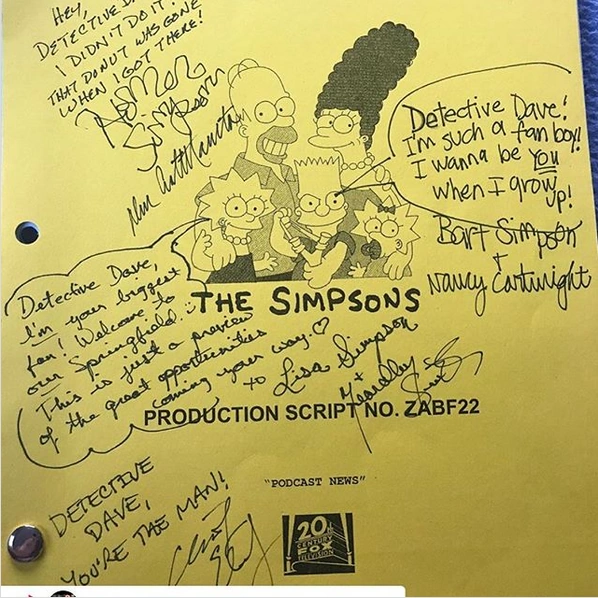 HEY,
DETECTIVE
I DIDN'T DO IT!
THAT DONUT WAS GONE
WHEN I GOT THERE!
HOMER
Simpson
Dan Castellaneta
Detective Dave!
I'm such a fan boy!
I wanna be you
when I grow
up!
Bart Simpson
+
Nancy Cartwright
Detective Dave,
I'm your biggest
fan! Welcome to
our Springfield.
This is just a preview
of the great opportunities
coming your way. ♡
xo Lisa Simpson
+
Yeardley Smith
THE SIMPSONS
PRODUCTION SCRIPT NO. ZABF22
"PODCAST NEWS"
DETECTIVE
DAVE,
YOU'RE THE MAN!
20th
CENTURY
FOX
TELEVISION